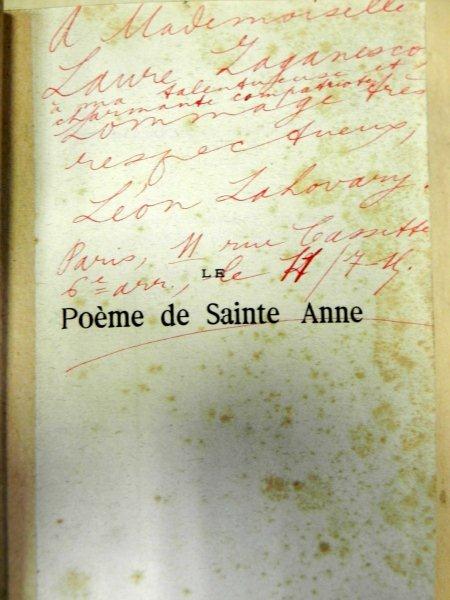 A Mademoiselle
Laure Zaganesco
à ma talentueuse et
charmante compatriote
hommage très
respectueux,
Léon Lahovary.
Paris, 11 rue Cassette
6e arr., le 11/7
LE
Poème de Sainte Anne